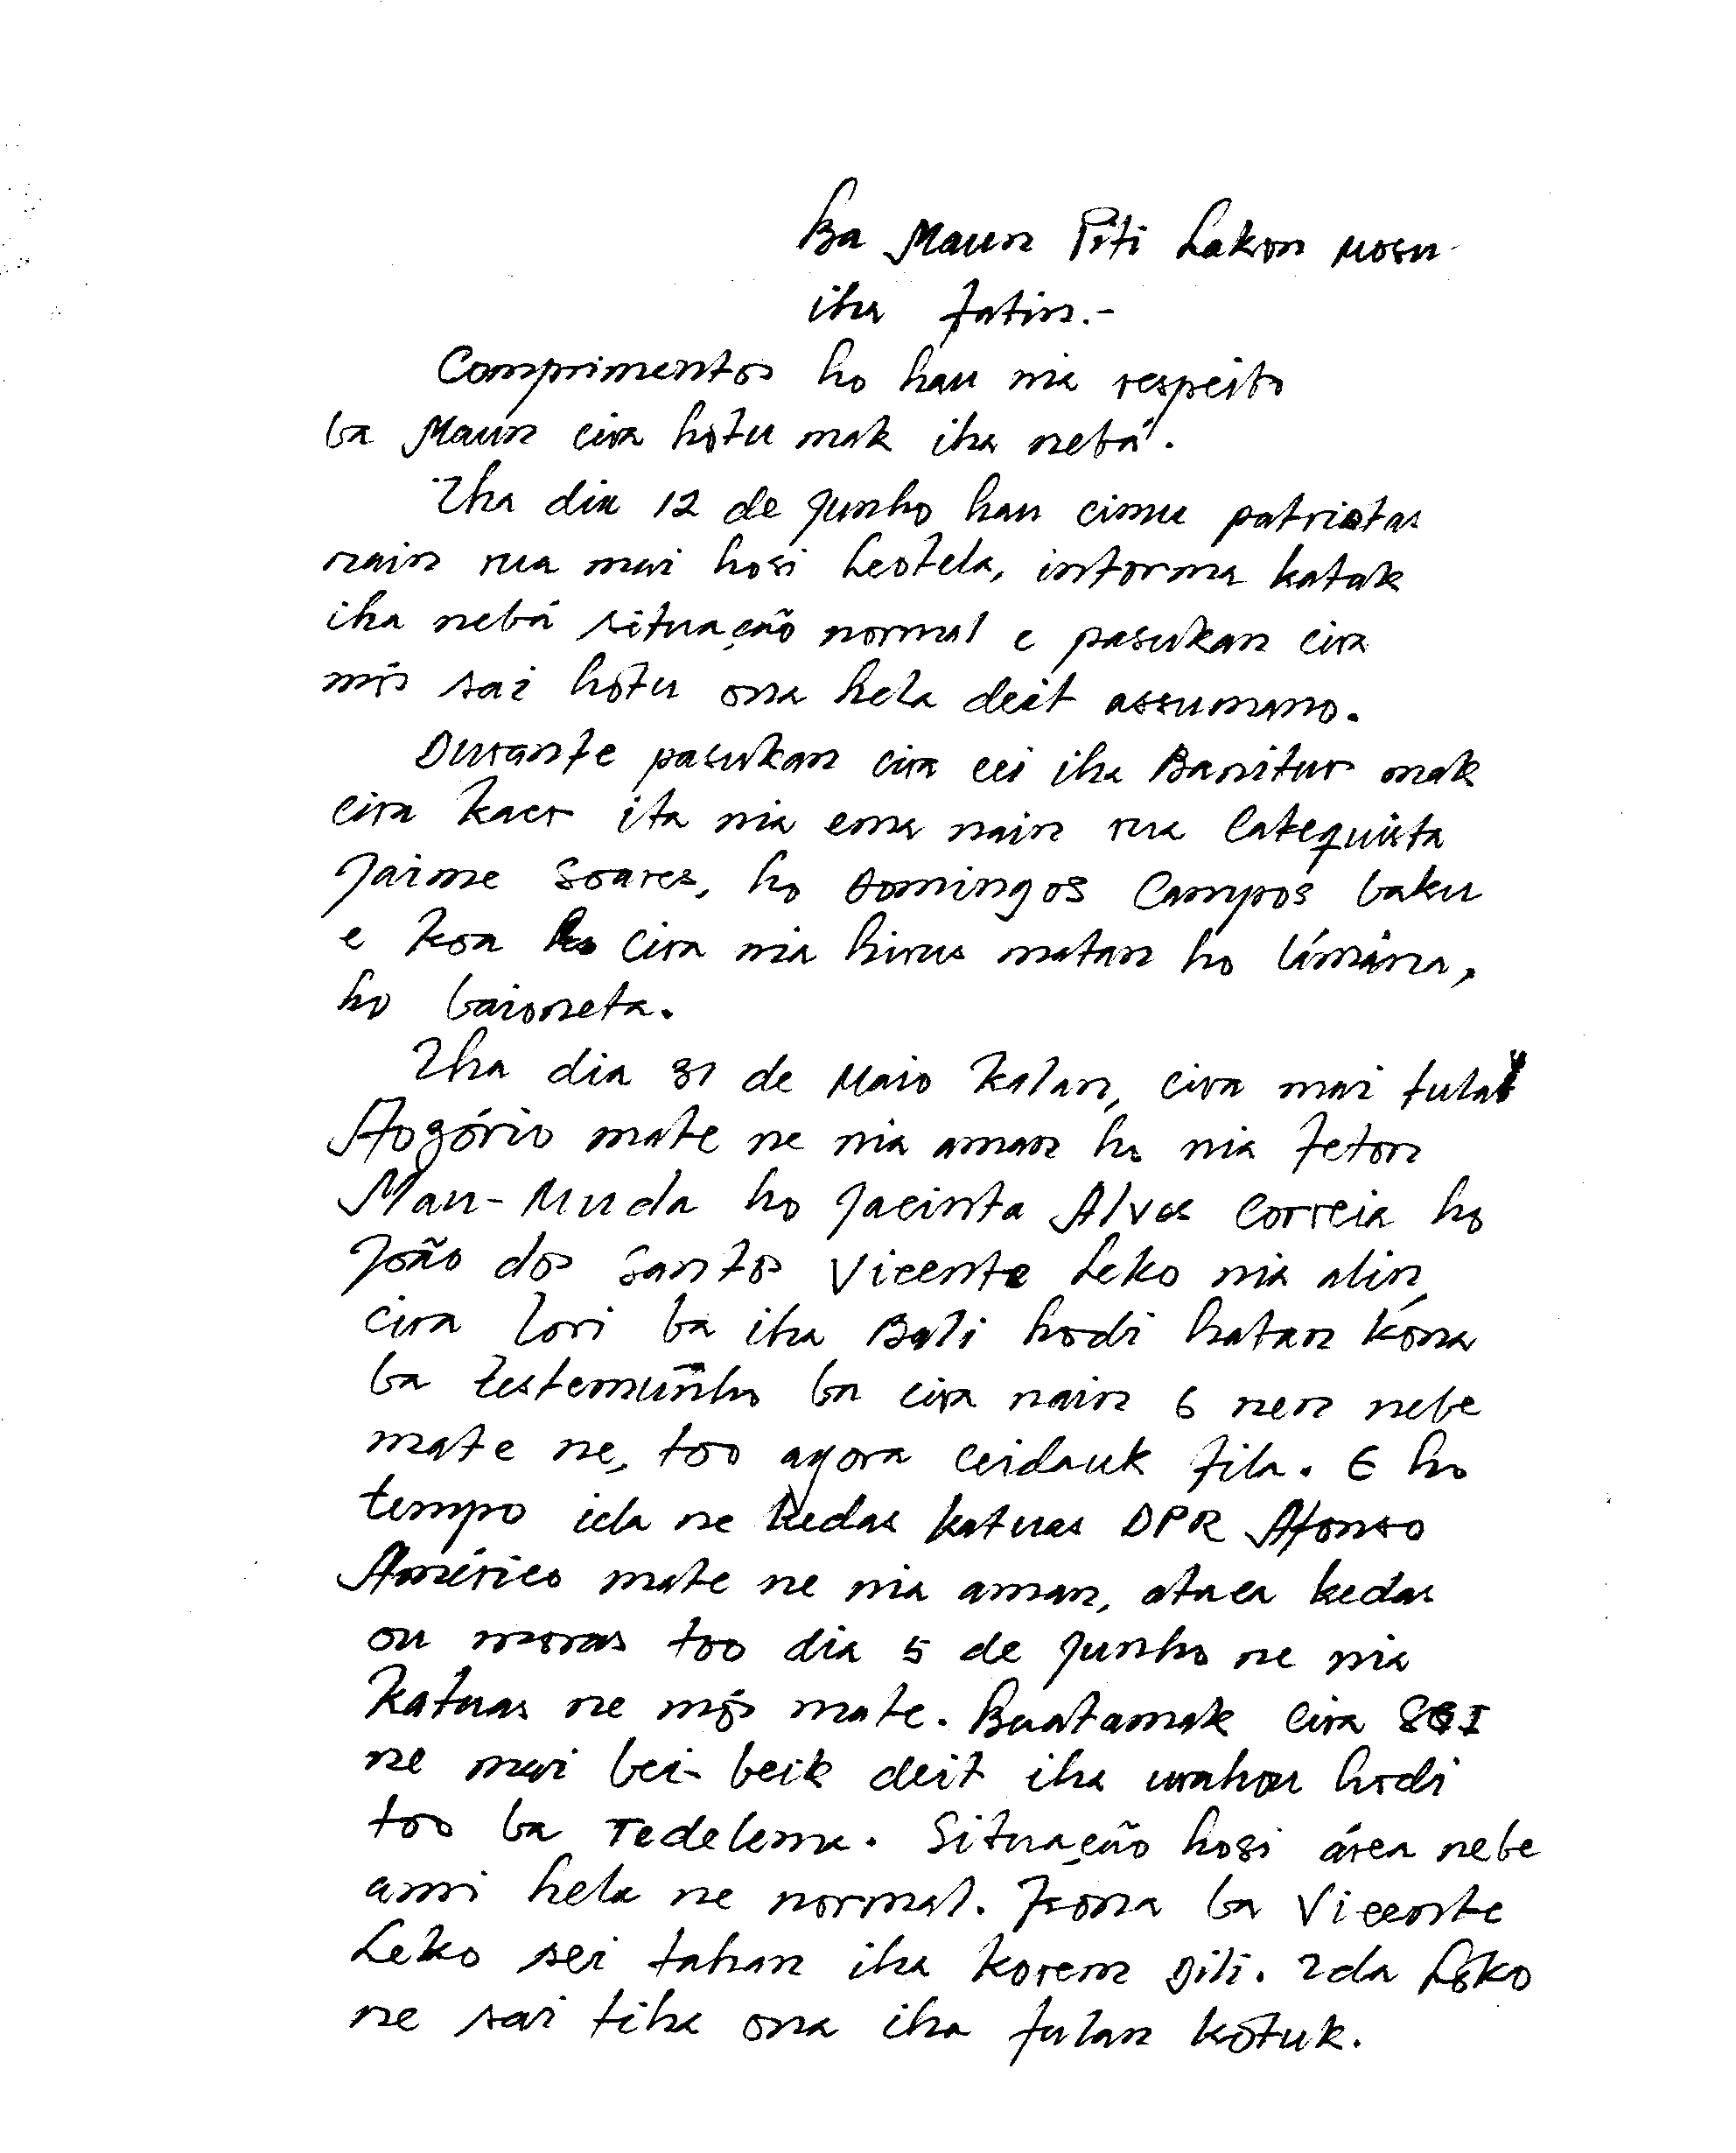 Ba Maun Piti Lakon Mosu
iha fatin.-
Comprimentos ho hau nia respeito
ba Maun cira hotu mak iha nebá.
Iha dia 12 de Junho hau cimu patriotas
nain rua mai hosi Leotela, informa katak
iha nebá situação normal e pasukan cira
mós sai hotu ona hela deit assummo.
Durante pasukan cira cei iha Banitur mak
cira kaer ita nia ema nain rua Catequista
Jaime Soares, ho Domingos Campos baku
e koa cira nia hirus matan ho límána,
ho baioneta.
Iha dia 31 de Maio Kalan, cira mai fula
Hogório mate ne nia aman ho nia feton
Mau-Muda ho Jacinta Alves Correia ho
João dos Santos Vicente Leko nia alin,
cira lori ba iha Bali hodi hatan kóna
ba testemunho ba cira nain 6 nen nebe
mate ne, too agora ceidauk fila. E ho
tempo ida ne kedas katuas DPR Afonso
Américo mate ne nia aman, ataca kedas
ou moras too dia 5 de Junho ne nia
Katuas ne mós mate. Buatamak cira SGI
ne mai bei-beik deit iha urahou hodi
too ba Tedelema. Situação hosi área nebe
ami hela ne normal. Kona ba Vicente
Leko sei tahan iha Korem Dili. Ida Loko
ne sai tiha ona iha fulan kotuk.